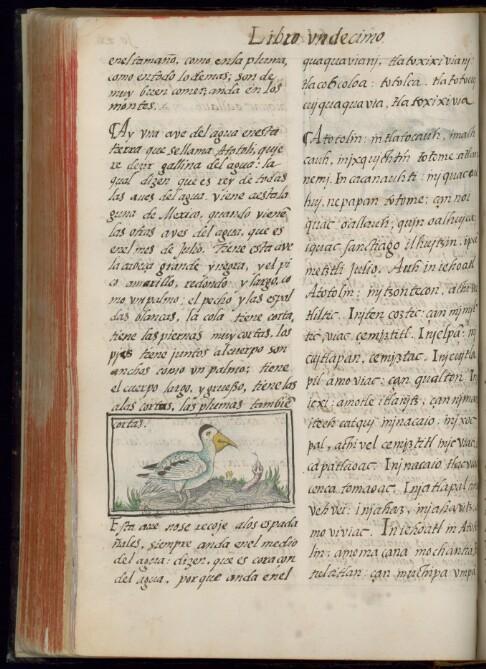 Libro vndecimo.
enel tamaño, como enla pluma,
como entodo lo demas; son de
muy buen comer, anda en los
montes.
Ay vna aue del agua enesta
tierra que se llama Atotoli, quie
re dezir gallina del agua: la
qual dizen que es rey de todas
las aues del agua. viene aesta la
guna de Mexico, quando vienē
las otras aues del agua, que es
enel mes de Julio. Tiene esta aue
la cabeça grande y negra, y el pi
co amarillo, redondo y largo, co
mo vn palmo; el pecho y las espal
das blancas, la cola tiene corta,
tiene las piernas muy cortas, los
pies tiene juntos alcuerpo son
anchos como vn palmo; tiene
el cuerpo largo, y grueso, tiene las
alas cortas, las plumas tambiē
cortas.
Esta aue nose recoje alos espada
ñales, siempre anda enel medio
del agua: dizen, que es coraçon
del agua, porque anda enel
quaquaviani, tlatoxixiviani
tlacocoloa: totolca, tlatotvca
cujquaquavia, tlatoxixivia
Atotolin: in tlatocauh, imach
cauh, injxqujchtin totome atlan
nemj. In canauhti: injquac
huj, nepapan totome: çan no
iquac oallauh; qujn oalhujca
iquac Sanctiago ilhujtzin, ipã
metztli Julio. Auh in iehoatl
Atotolin: injtzontecon,
tliltic. Injten coztic: çan
tic viac, cemjztitl. Injelpã:
cujtlapan, cemjztac. Injcujtla
pil amo viac: çan qualton. In
icxi: amotle itlanjtz, çan njman
itech catquj injnacaio: injxoc
pal, achi vel cemjztetl injc viac,
ic patlaoac. Injnacaio
cenca tomaoac. Injatlapal
vehvei: injahaz,
mo viviac. In iehoatl in Atoto
lin: amo ma cana mochantia
tulaitlan: çan mochipa vmpa